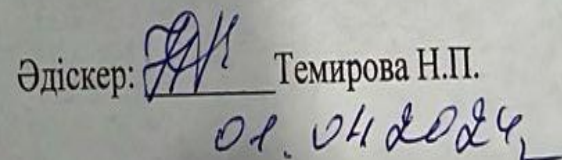 Әдіскер: Темирова Н.П.
01.04 2024